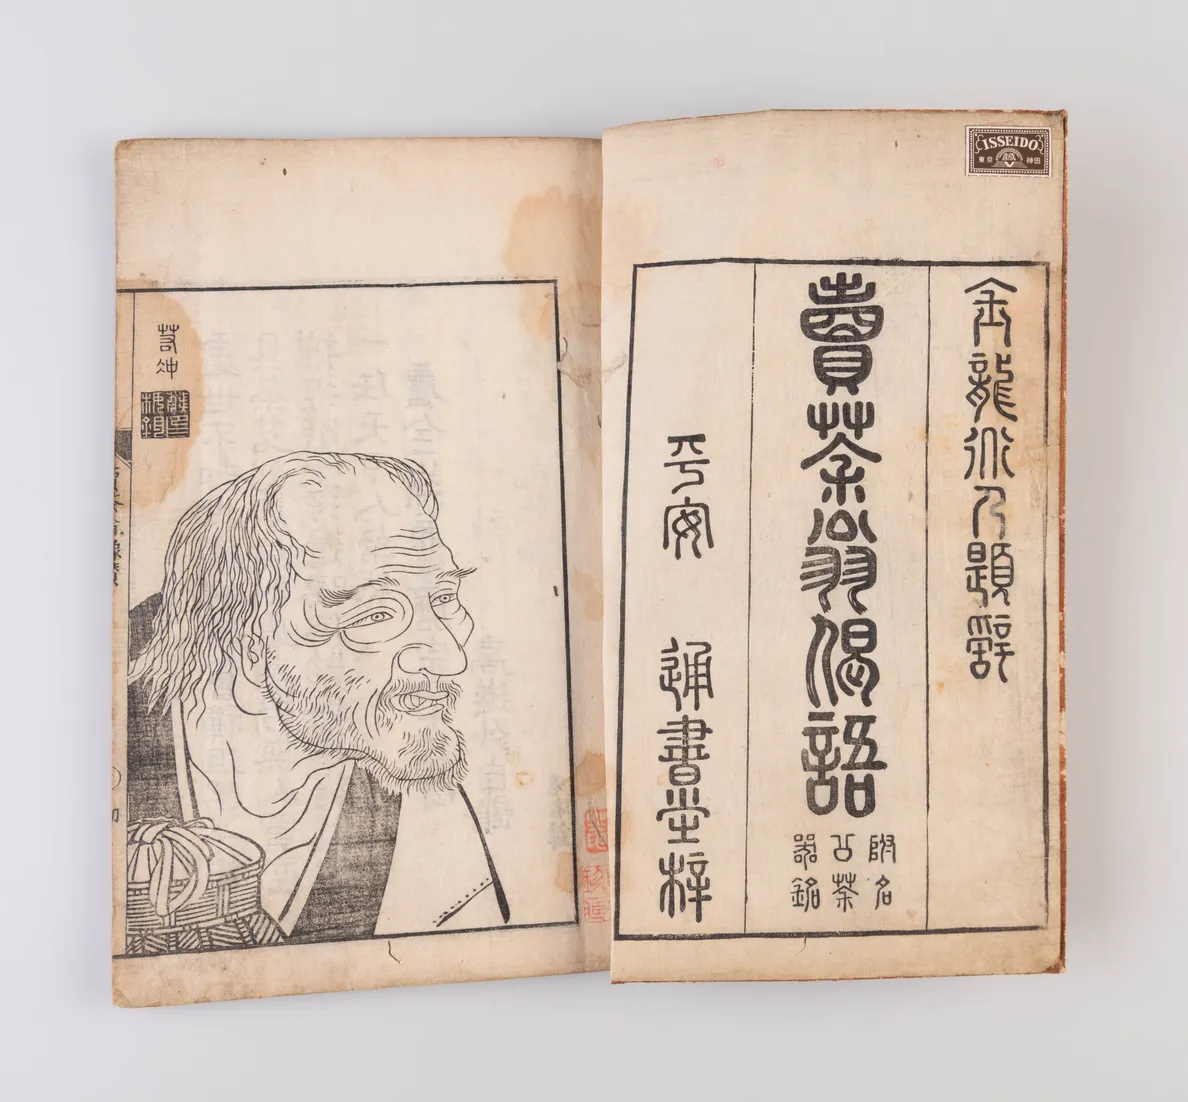 ISSEIDO
東京 神田
金龍 題辭
賣茶翁偈語
附名
公茶
器銘
平安 通書堂梓
若冲